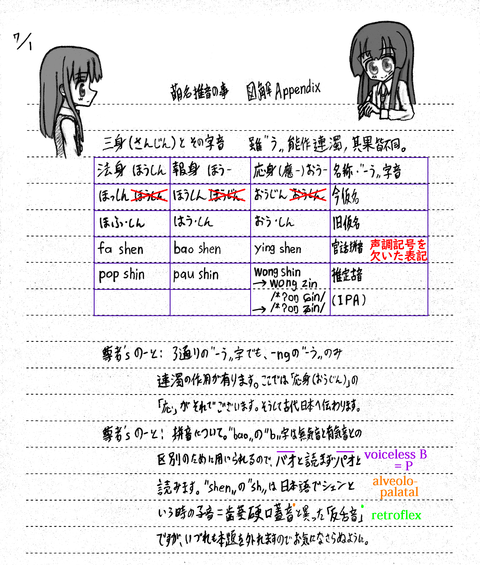 7/1
萌名推音の事 図解 Appendix
三身(さんじん)と その字音 雖"う"能作連濁,其果皆不同。
法身 ほうしん 報身 ほうー 応身(應ー)おうー 名称・"ーう"字音
ほっしん ほうじん ほうしん ほうじん おうじん おうしん 今仮名
ほふ・しん はう・しん おう・しん 旧仮名
fa shen bao shen ying shen 官法拼音 声調記号を欠いた表記
pop shin pau shin wong shin 推定古音
→ wong zin
(IPA)
尊者's のーと: 3通りの"ーう"字でも、-ngの"ーう"のみ
連濁の作用が有ります。ここでは「応身(おうじん)」の
「応」がそれでございます。そうして古代日本へ伝わります。
尊者's のーと: 拼音について。"bao"の"b"字は無気音と有気音との
区別のために用いられるので、バオと読まずパオと
voiceless B = P
読みます。"shen"の"sh"は日本語でシェンと
alveolo-palatal
いう時の子音=歯茎硬口蓋音と異った「反舌音」
retroflex
ですが、いづれも本題を外れますのでお気になさらぬように。